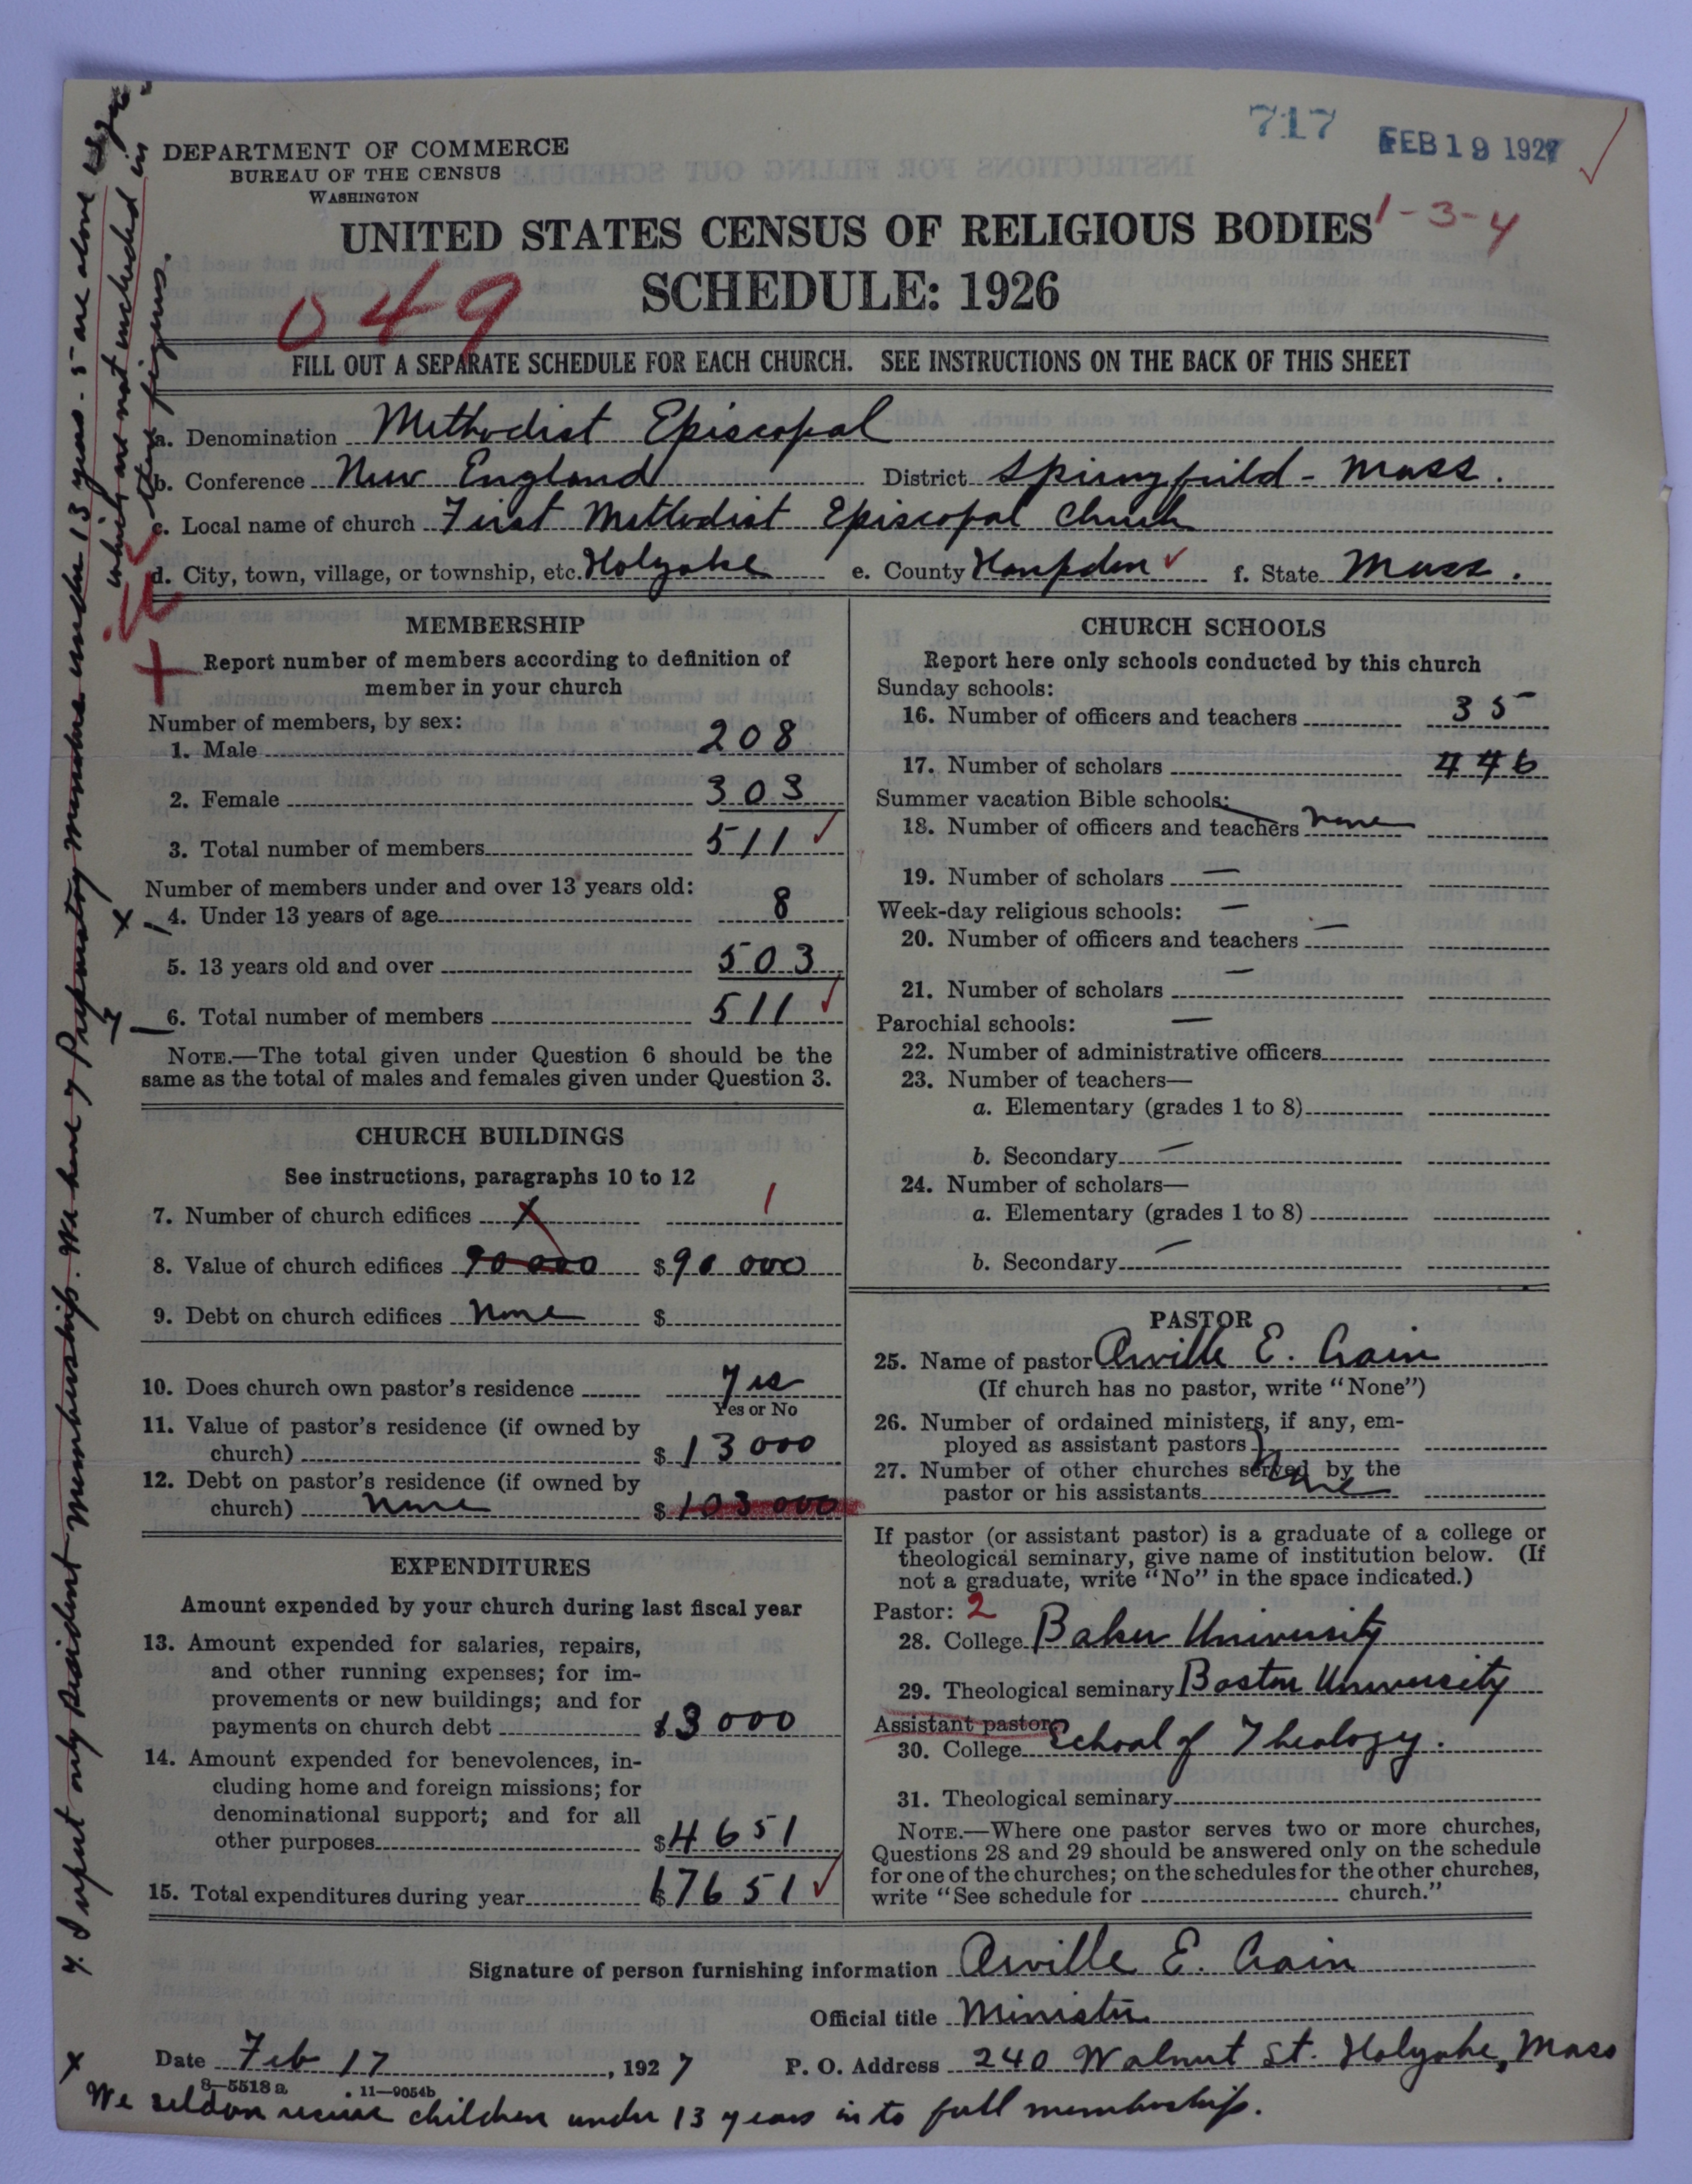 717 FEB 19 1927
DEPARTMENT OF COMMERCE
BUREAU OF THE CENSUS
WASHINGTON
UNITED STATES CENSUS OF RELIGIOUS BODIES 1-3-4
SCHEDULE: 1926
049
FILL OUT A SEPARATE SCHEDULE FOR EACH CHURCH. SEE INSTRUCTIONS ON THE BACK OF THIS SHEET
a. Denomination Methodist Episcopal
b. Conference New England District Springfield - Mass.
c. Local name of church First Methodist Episcopal Church
d. City, town, village, or township, etc. Holyoke e. County Hampden f. State Mass.
MEMBERSHIP
Report number of members according to definition of
member in your church
Number of members, by sex:
1. Male 208
2. Female 303
3. Total number of members 511
Number of members under and over 13 years old:
x 4. Under 13 years of age 8
5. 13 years old and over 503
6. Total number of members 511
NOTE.—The total given under Question 6 should be the
same as the total of males and females given under Question 3.
CHURCH BUILDINGS
See instructions, paragraphs 10 to 12
7. Number of church edifices 1
8. Value of church edifices 90000 $90 000
9. Debt on church edifices None $
10. Does church own pastor's residence Yes
Yes or No
11. Value of pastor's residence (if owned by
church) $13000
12. Debt on pastor's residence (if owned by
church) None $103000
EXPENDITURES
Amount expended by your church during last fiscal year
13. Amount expended for salaries, repairs,
and other running expenses; for im-
provements or new buildings; and for
payments on church debt 13000
14. Amount expended for benevolences, in-
cluding home and foreign missions; for
denominational support; and for all
other purposes $4651
15. Total expenditures during year 17651
CHURCH SCHOOLS
Report here only schools conducted by this church
Sunday schools:
16. Number of officers and teachers 35
17. Number of scholars 446
Summer vacation Bible schools:
18. Number of officers and teachers none
19. Number of scholars —
Week-day religious schools: —
20. Number of officers and teachers —
21. Number of scholars —
Parochial schools: —
22. Number of administrative officers
23. Number of teachers—
a. Elementary (grades 1 to 8)
b. Secondary —
24. Number of scholars—
a. Elementary (grades 1 to 8)
b. Secondary —
PASTOR
25. Name of pastor Orville E. Crain
(If church has no pastor, write "None")
26. Number of ordained ministers, if any, em-
ployed as assistant pastors
27. Number of other churches served by the
pastor or his assistants None
If pastor (or assistant pastor) is a graduate of a college or
theological seminary, give name of institution below. (If
not a graduate, write "No" in the space indicated.)
Pastor: 2
28. College Baker University
29. Theological seminary Boston University
Assistant pastor:
30. College School of Theology.
31. Theological seminary
NOTE.—Where one pastor serves two or more churches,
Questions 28 and 29 should be answered only on the schedule
for one of the churches; on the schedules for the other churches,
write "See schedule for church."
Signature of person furnishing information Orville E. Crain
Official title Minister
Date Feb 17, 1927 P. O. Address 240 Walnut St. Holyoke, Mass
8—5518a 11—9054b
x We seldom receive children under 13 years in to full membership.
I report only resident membership. We have 7 Preparatory members under 13 years - 5 are above
which are not included in
other figures.